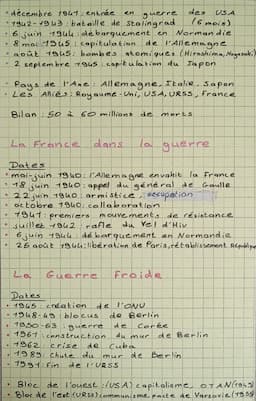 • décembre 1941 : entrée en guerre des USA
• 1942-1943 : bataille de Stalingrad (6 mois)
• 6 juin 1944 : débarquement en Normandie
• 8 mai 1945 : capitulation de l'Allemagne
• août 1945 : bombes atomiques (Hiroshima, Nagasaki)
• 2 septembre 1945 : capitulation du Japon
• Pays de l'Axe : Allemagne, Italie, Japon
• Les Alliés : Royaume-Uni, USA, URSS, France
Bilan : 50 à 60 millions de morts
La France dans la guerre
Dates
• mai-juin 1940 : l'Allemagne envahit la France
• 18 juin 1940 : appel du général de Gaulle
• 22 juin 1940 : armistice, occupation
• octobre 1940 : collaboration
• 1941 : premiers mouvements de résistance
• juillet 1942 : rafle du Vel d'Hiv
• 6 juin 1944 : débarquement en Normandie
• 26 août 1944 : libération de Paris, rétablissement République
La Guerre Froide
Dates
• 1945 : création de l'ONU
• 1948-49 : blocus de Berlin
• 1950-53 : guerre de Corée
• 1961 : construction du mur de Berlin
• 1962 : crise de Cuba
• 1989 : chute du mur de Berlin
• 1991 : fin de l'URSS
• Bloc de l'ouest : (USA) capitalisme, OTAN (1949)
• Bloc de l'est (URSS) communisme, pacte de Varsovie (1955)